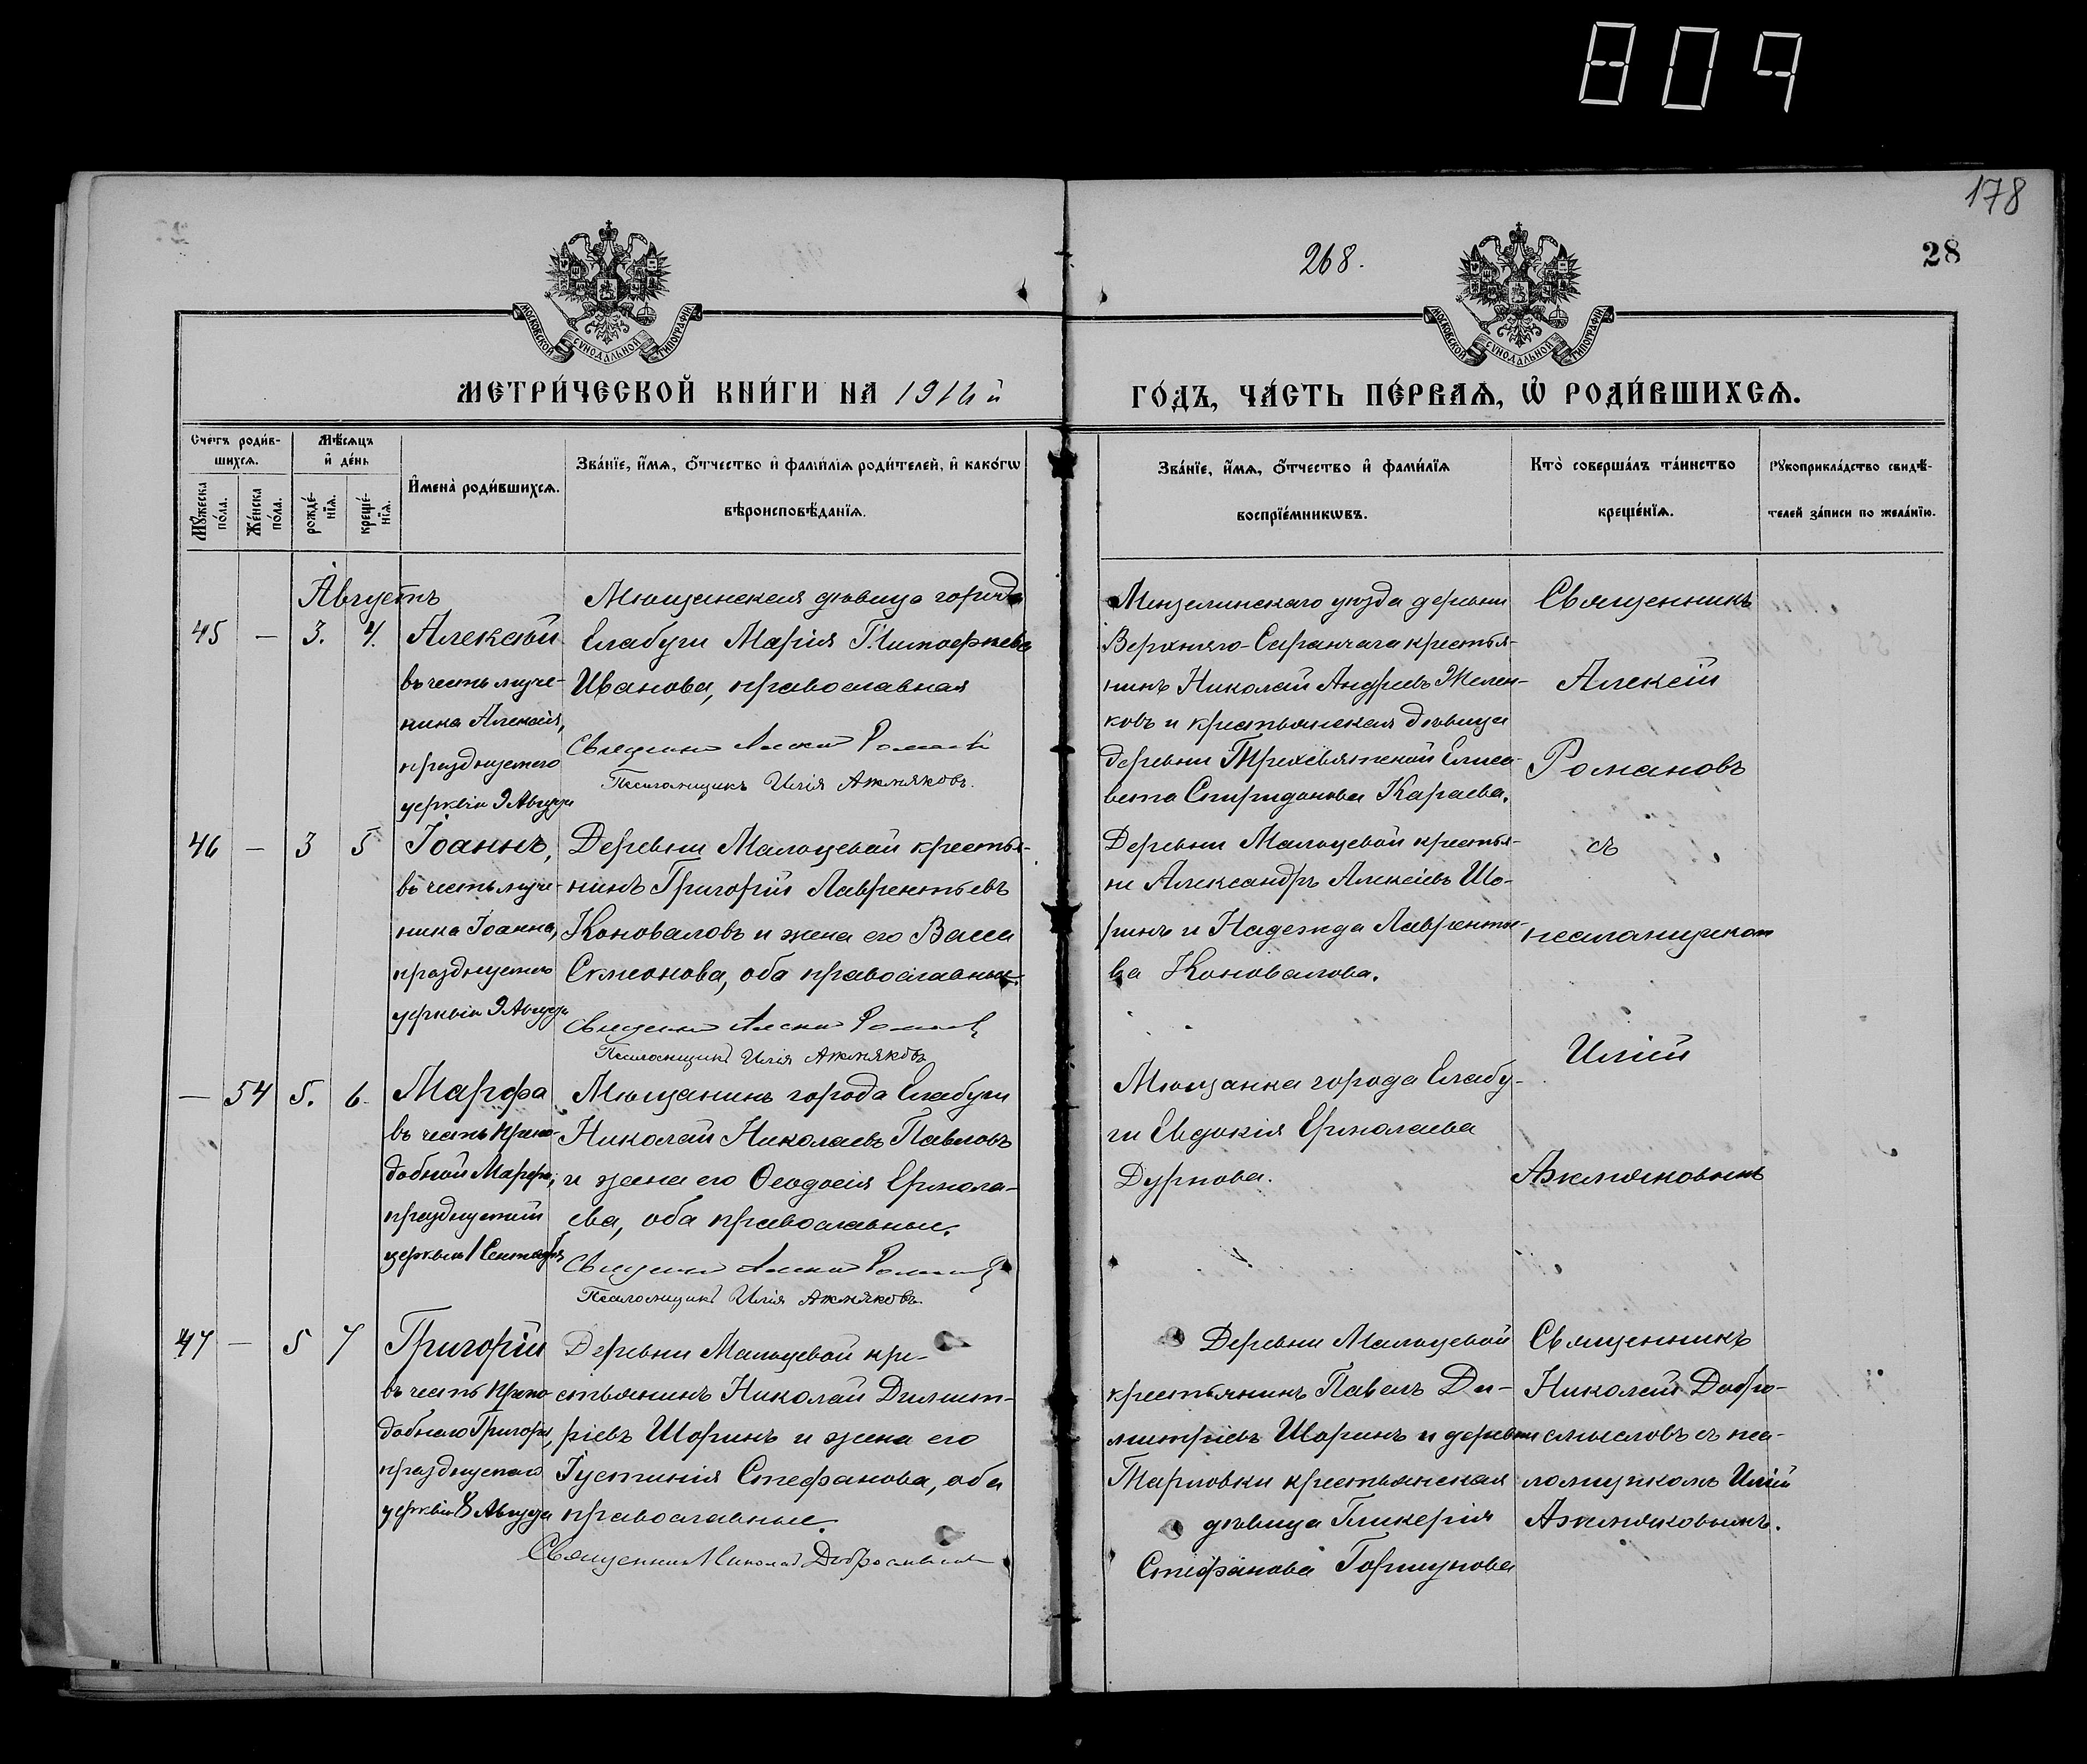 809
178
268.
28
МОСКОВСКОЙ СУНОДАЛЬНОЙ ТИПОГРАФІИ
МОСКОВСКОЙ СУНОДАЛЬНОЙ ТИПОГРАФІИ
МЕТРИ́ЧЕСКОЙ КНИ́ГИ НА
ГО́ДЪ, ЧА́СТЬ ПЕ́РВАѦ, Ѽ РОДИ́ВШИХСѦ.
Сче́тъ роди́в-
шихсѧ.
Мꙋ́жеска по́ла.
Же́нска по́ла.
Мѣ́сѧцъ и҆ де́нь
рожде́-нїѧ.
креще́-нїѧ.
И҆мена̀ роди́вшихсѧ.
Зва́нїе, и҆́мѧ, ѻ҆́тчество и҆ фами́лїѧ роди́телей, и҆ како́гѡ
вѣроисповѣ́данїѧ.
Зва́нїе, и҆́мѧ, ѻ҆́тчество и҆ фами́лїѧ
воспрїе́мникѡвъ.
Кто̀ соверша́лъ та́инство
креще́нїѧ.
Рꙋкоприкла́дство свидѣ́-
телей за́писи по жела́нїю.
Августъ
45 — 3. 4.
Алексій
въ честь муче-
ника Алексія,
празднуемаго
церквію 9 Августа
Мѣщанская дѣвица города
Елабуги Марія Тимофеева
Иванова, православная
Священникъ Алексій Романовъ
Псаломщикъ Илія Ажмяковъ.
Мензелинскаго уѣзда деревни
Верхняго-Сиранчака крестья-
нинъ Николай Андреевъ Желен-
ковъ и крестьянская дѣвица
деревни Трехсвятской Елиса-
вета Спиридонова Караева.
46 — 3 5
Іоаннъ,
въ честь муче-
ника Іоанна,
празднуемаго
церквію 9 Августа
Деревни Мальцевой крестья-
нинъ Григорій Лаврентьевъ
Коноваловъ и жена его Васса
Симеонова, оба православные.
Священникъ Алексій Романовъ
Псаломщикъ Илія Ажмяковъ
Деревни Мальцевой крестья-
не Александръ Алексіевъ Шо-
ринъ и Надежда Лаврентье-
ва Коновалова.
Священникъ
Алексій
Романовъ
съ
псаломщикомъ
Иліей
Ажмяковымъ
— 54 5. 6.
Марфа
въ честь препо-
добной Марфы,
празднуемой
церквію 1 Сентября
Мѣщанинъ города Елабуги
Николай Николаевъ Павловъ
и жена его Ѳеодосія Ермола-
ева, оба православные.
Священникъ Алексій Романовъ
Псаломщикъ Илія Ажмяковъ.
Мѣщанка города Елабу-
ги Евдокія Ермолаева
Дурнова.
47 — 5 7
Григорій
въ честь препо-
добнаго Григорія,
празднуемаго
церквію 8 Августа
Деревни Мальцевой кре-
стьянинъ Николай Димит-
ріевъ Шоринъ и жена его
Іустинія Стефанова, оба
православные.
Священникъ Николай Добросмысловъ
Деревни Мальцевой
крестьянинъ Павелъ Ди-
митріевъ Шоринъ и деревни
Тарловки крестьянская
дѣвица Гликерія
Стефанова Горшунова
Священникъ
Николай Добро-
смысловъ съ пса-
ломщикомъ Иліей
Ажмяковымъ.